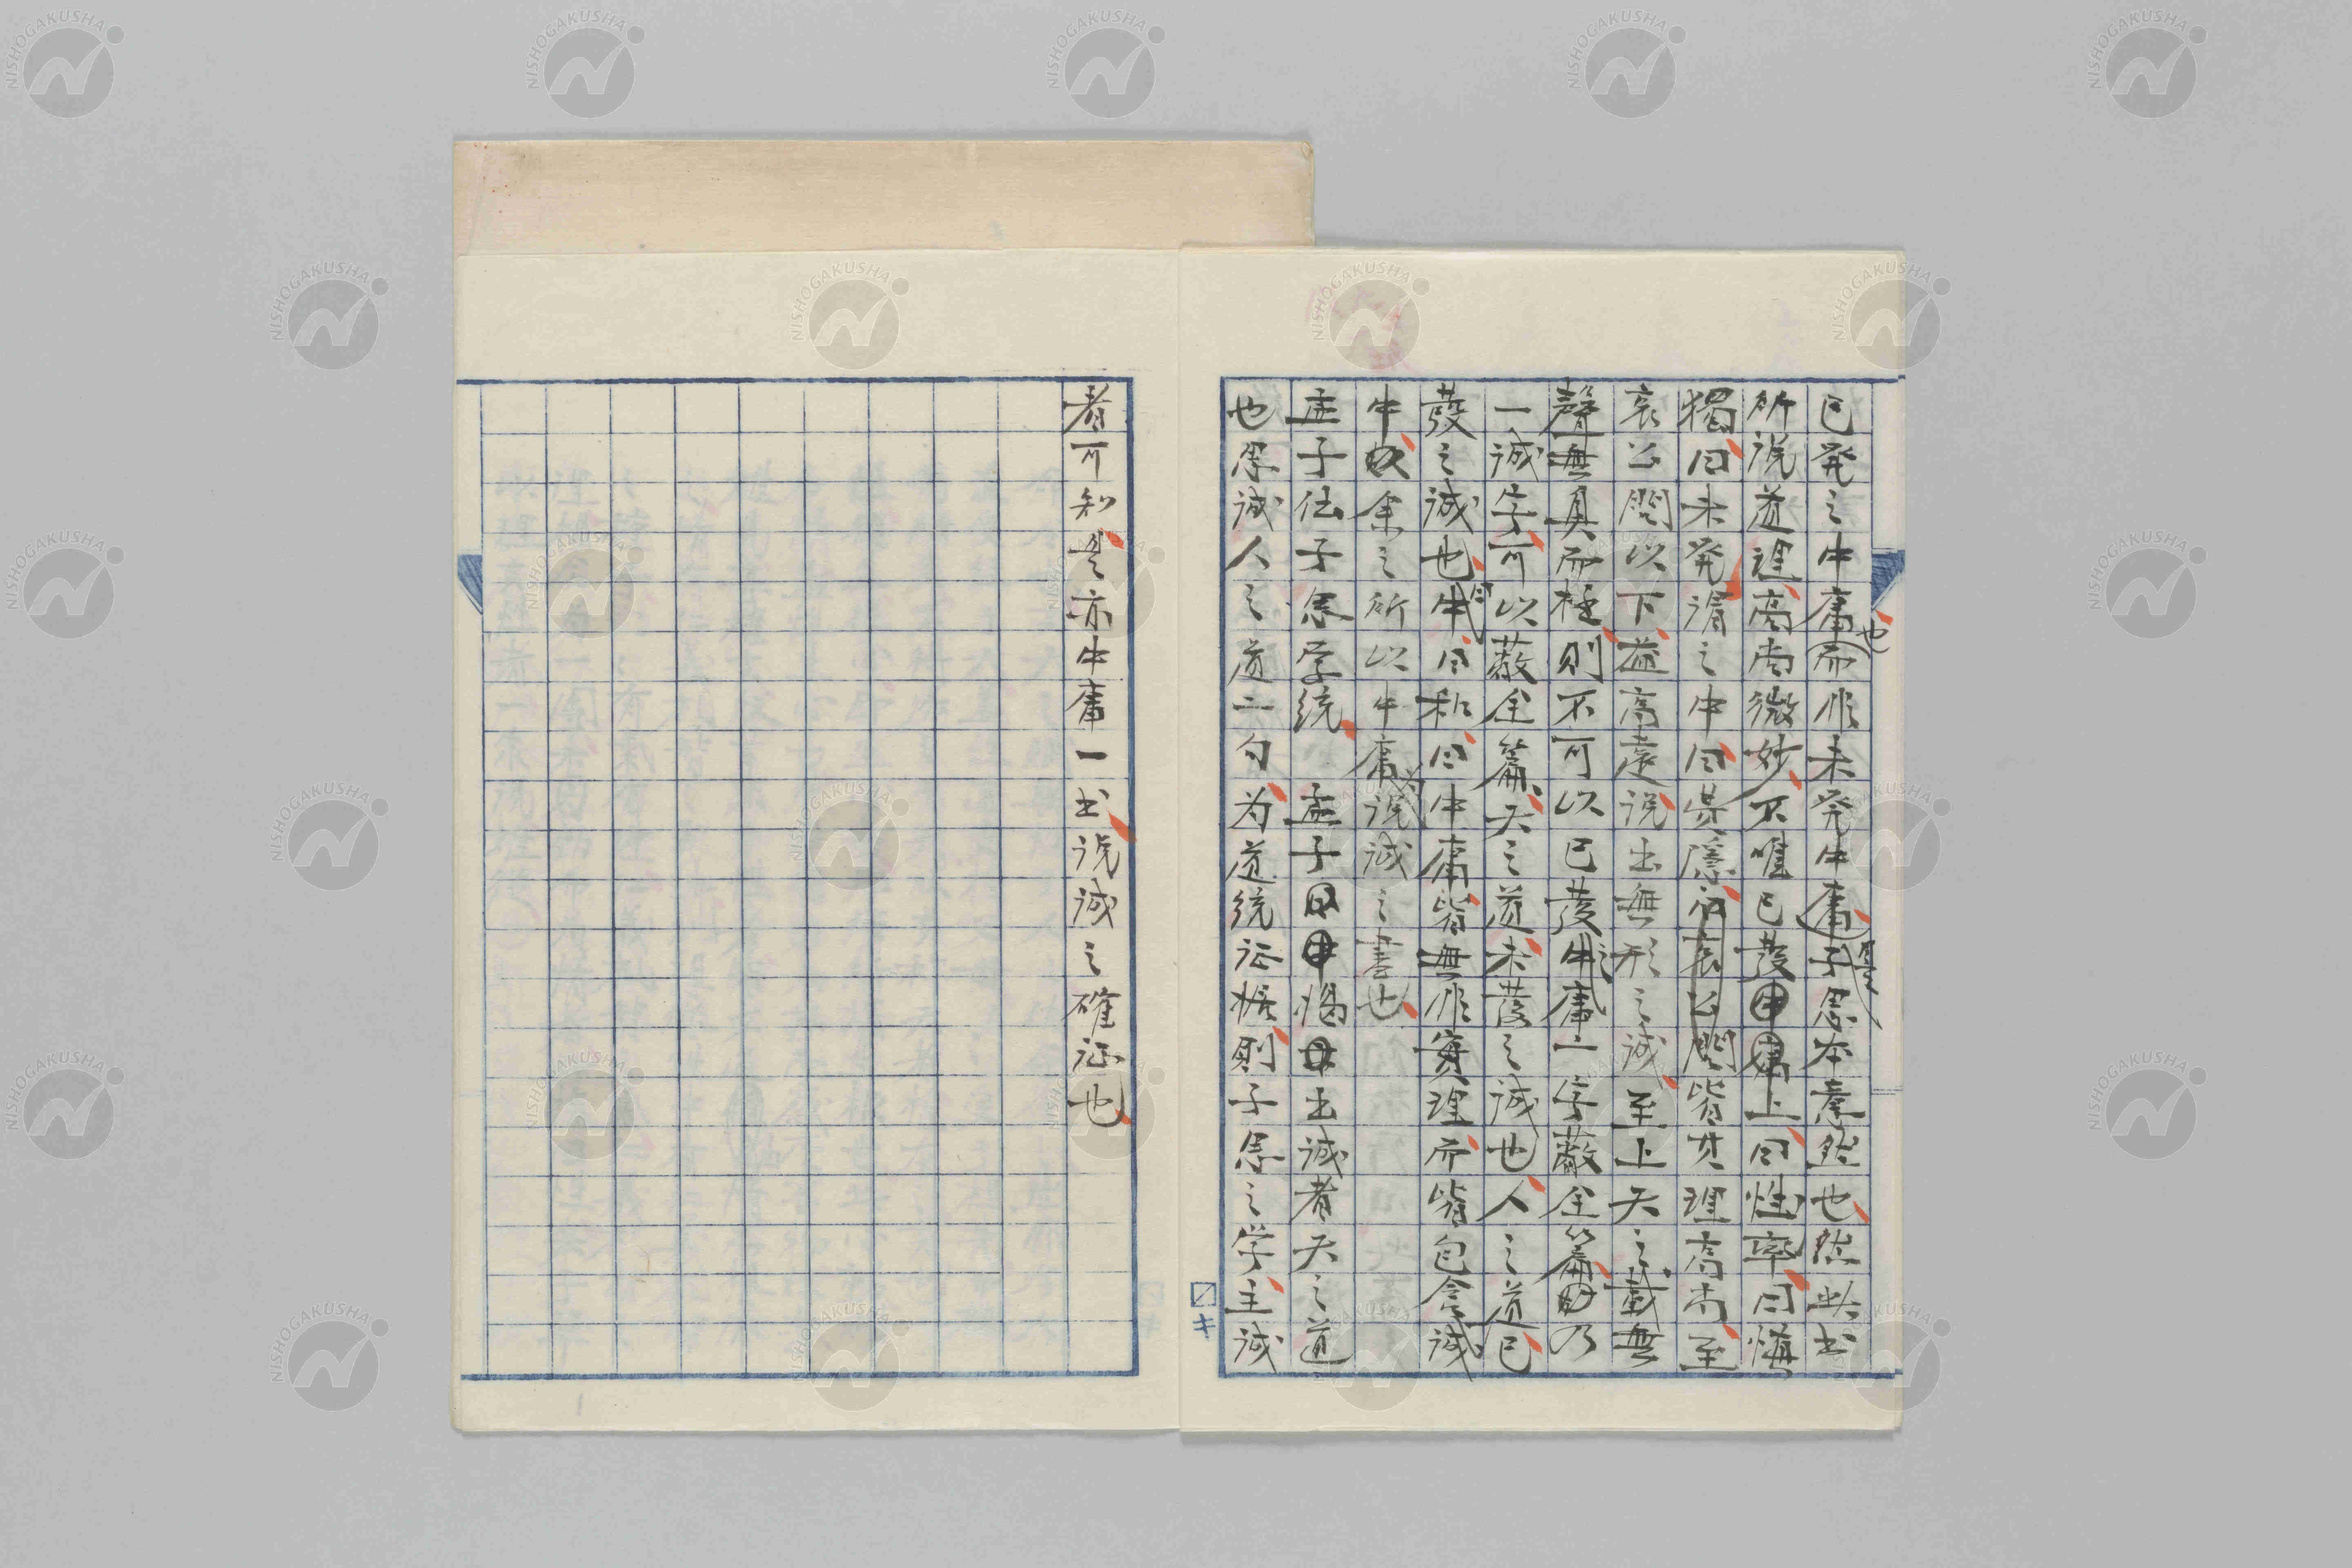 已発之中庸也而非未発中庸子思本意然也然此书
所説道理高尚微妙不唯已發上曰性率曰慎
獨曰未発謂之中曰費隱哀公問皆其理高尚至
哀公問以下益高遠説出無形之誠至上天之載無
聲無臭而極則不可以已發之中庸二字蔽全篇乃
一誠字可以蔽全篇天之道未發之誠也人之道已
發之誠也中曰和曰中庸皆無非實理而皆包含誠
中余之所以中庸為説誠之書也
孟子伝子思学統 孟子出誠者天之道
也思誠人之道二句为道統证拠則子思之学主誠
者可知是亦中庸一书説誠之確证也
キ
NISHOGAKUSHA